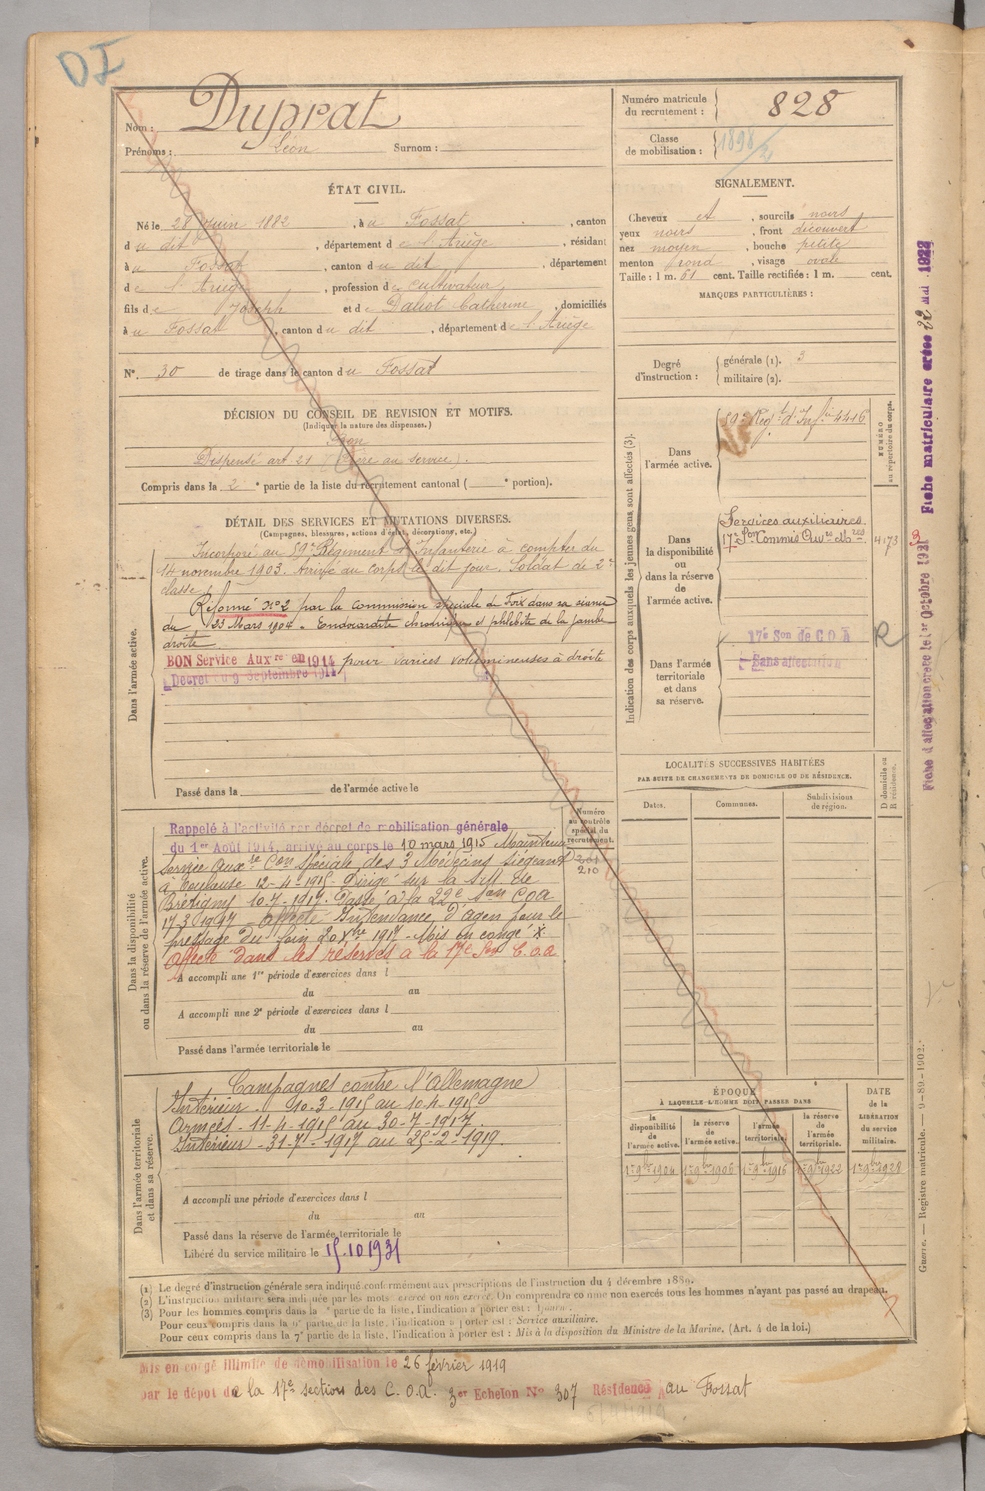 DI
Nom : Duprat
Prénoms : Léon Surnom :
Numéro matricule du recrutement : 828
Classe de mobilisation : 1898/2
ÉTAT CIVIL.
Né le 28 Juin 1882, à u Fossat, canton
d u dit, département d e l'Ariège, résidant
à u Fossat, canton d u dit, département
d e l'Ariège, profession d e cultivateur,
fils d e Joseph et d e Dalist Catherine, domiciliés
à u Fossat, canton d u dit, département d e l'Ariège
N° 30 de tirage dans le canton d u Fossat
SIGNALEMENT.
Cheveux et, sourcils noirs
yeux noirs, front découvert
nez moyen, bouche petite
menton rond, visage ovale
Taille : 1 m. 61 cent. Taille rectifiée : 1 m. cent.
MARQUES PARTICULIÈRES :
Degré d'instruction : générale (1). 3
militaire (2).
DÉCISION DU CONSEIL DE REVISION ET MOTIFS.
(Indiquer la nature des dispenses.)
Bon
Dispensé art 21 (frère au service).
Compris dans la 2e partie de la liste du recrutement cantonal ( e portion).
DÉTAIL DES SERVICES ET MUTATIONS DIVERSES.
(Campagnes, blessures, actions d'éclat, décorations, etc.)
Dans l'armée active.
Incorporé au 59e Régiment d'Infanterie à compter du
14 novembre 1903. Arrivé au corps le dit jour. Soldat de 2e
classe.
Réformé N° 2 par la commission spéciale de Foix dans sa séance
du 23 Mars 1904. Endocardite chronique et phlébite de la jambe
droite.
BON Service Auxre en 1914 pour varices volumineuses à droite
Décret du 9 Septembre 1914
Passé dans la de l'armée active le
Indication des corps auxquels les jeunes gens sont affectés (3).
NUMÉRO au répertoire du corps.
Dans l'armée active.
59e Régt d'Infie 4416
Dans la disponibilité ou dans la réserve de l'armée active.
Services auxiliaires.
17e Son Commis Ouvrs d'Aon
4173
Dans l'armée territoriale et dans sa réserve.
17e Son de C O A
Sans affectation
R
Fiche d'affectation créée le 1er Octobre 1921
Fiche matriculaire créée 22 Mai 1922
LOCALITÉS SUCCESSIVES HABITÉES
PAR SUITE DE CHANGEMENTS DE DOMICILE OU DE RÉSIDENCE.
Dates. Communes. Subdivisions de région. D domicile ou R résidence.
Dans la disponibilité ou dans la réserve de l'armée active.
Numéro au contrôle spécial du recrutement.
210
Rappelé à l'activité par décret de mobilisation générale
du 1er Août 1914, arrivé au corps le 10 mars 1915 Maintenu
Service Auxre Con Spéciale des 3 Médecins siégeant
à Toulouse 12-4-1915. Dirigé sur la S.M. de
Brétigny 10-7-1917. Passé à la 22e Son COA
17-3-1917 - affecté Intendance d'Agen pour le
pressage du foin 20 Xbre 1917 - Mis en congé X
Affecté dans les réserves à la 17e Son C.O.A
A accompli une 1re période d'exercices dans l
du au
A accompli une 2e période d'exercices dans l
du au
Passé dans l'armée territoriale le
Dans l'armée territoriale et dans sa réserve.
Campagnes contre l'Allemagne
Intérieur - 10-3-1915 au 10-4-1915
Armées - 11-4-1915 au 30-7-1917
Intérieur - 31-7-1917 au 25-2-1919
A accompli une période d'exercices dans l
du au
Passé dans la réserve de l'armée territoriale le
Libéré du service militaire le 15.10 1931
ÉPOQUE
À LAQUELLE L'HOMME DOIT PASSER DANS
la disponibilité de l'armée active. la réserve de l'armée active. l'armée territoriale. la réserve de l'armée territoriale.
DATE de la LIBÉRATION du service militaire.
1er 9bre 1904 1er 9bre 1906 1er 9bre 1916 1er 9bre 1922 1er 9bre 1928
Guerre. — Registre matricule. — 9-89-1902.
(1) Le degré d'instruction générale sera indiqué conformément aux prescriptions de l'instruction du 4 décembre 1889.
(2) L'instruction militaire sera indiquée par les mots : exercé ou non exercé. On comprendra comme non exercés tous les hommes n'ayant pas passé au drapeau.
(3) Pour les hommes compris dans la e partie de la liste, l'indication à porter est : Ajourné.
Pour ceux compris dans la 6e partie de la liste, l'indication à porter est : Service auxiliaire.
Pour ceux compris dans la 7e partie de la liste, l'indication à porter est : Mis à la disposition du Ministre de la Marine. (Art. 4 de la loi.)
Mis en congé illimité de démobilisation le 26 février 1919
par le dépôt de la 17e section des C.O.A. 3er Echelon N° 307 Résidence A au Fossat